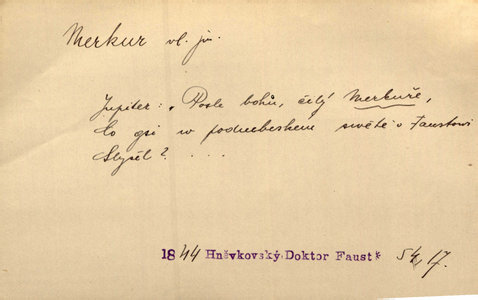 Merkur vl. jm.
Jupiter: „Posle bohů, čilý Merkuře,
Co gsi w podnebeském swětě o Faustowi
Slyšel? . . .
1844 Hněvkovský, Doktor Faust 54, 17.